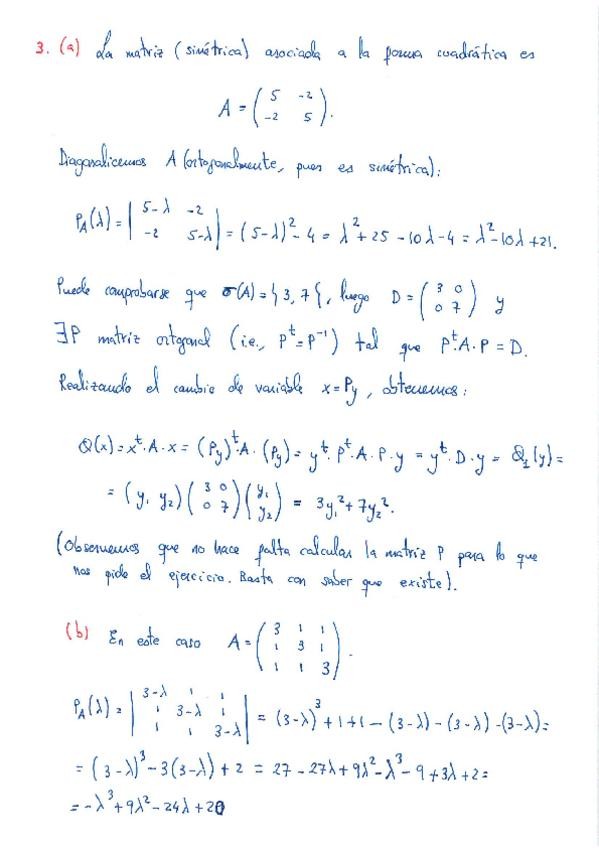 3. (a) La matriz (simétrica) asociada a la forma cuadrática es
A = ( 5 -2
-2 5 ).
Diagonalicemos A (ortogonalmente, pues es simétrica):
P_A(λ) = | 5-λ -2
-2 5-λ | = (5-λ)² - 4 = λ² + 25 - 10λ - 4 = λ² - 10λ + 21.
Puede comprobarse que σ(A) = {3, 7}, luego D = ( 3 0
0 7 ) y
∃P matriz ortgonal (i.e., Pᵗ = P⁻¹) tal que Pᵗ·A·P = D.
Realizando el cambio de variable x = Py, obtenemos:
Q(x) = xᵗ·A·x = (Py)ᵗ·A·(Py) = yᵗ·Pᵗ·A·P·y = yᵗ·D·y = Q₁(y) =
= (y₁ y₂) ( 3 0
0 7 ) ( y₁
y₂ ) = 3y₁² + 7y₂².
(Observemos que no hace falta calcular la matriz P para lo que
nos pide el ejercicio. Basta con saber que existe).
(b) En este caso A = ( 3 1 1
1 3 1
1 1 3 ).
P_A(λ) = | 3-λ 1 1
1 3-λ 1
1 1 3-λ | = (3-λ)³ + 1 + 1 - (3-λ) - (3-λ) - (3-λ) =
= (3-λ)³ - 3(3-λ) + 2 = 27 - 27λ + 9λ² - λ³ - 9 + 3λ + 2 =
= -λ³ + 9λ² - 24λ + 20